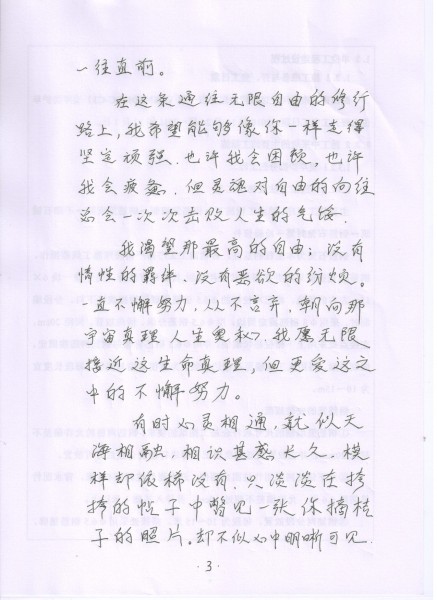 一往直前。
在这条通往无限自由的修行
路上，我希望能够像你一样走得
坚定顽强。也许我会困顿，也许
我会疲惫，但灵魂对自由的向往
总会一次次击败人生的气馁。
我渴望那最高的自由；没有
惰性的羁绊，没有恶欲的纷烦。
一直不懈努力，从不言弃，朝向那
宇宙真理、人生奥秘，我愿无限
接近这生命真理，但更爱这之
中的不懈努力。
有时心灵相通，就似天
海相融，相识甚感长久，模
样却依稀没有，只淡淡在
的帖子中瞥见一张你摘桔
子的照片，却不似心中明晰可见。
·3·